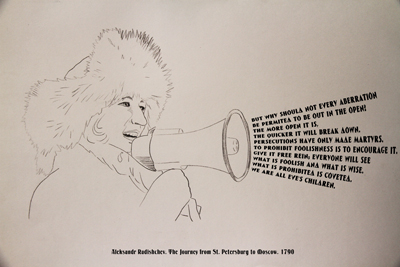 BUT WHY SHOULA NOT EVERY ABERRATION
BE PERMITEA TO BE OUT IN THE OPEN?
THE MORE OPEN IT IS,
THE QUICKER IT WILL BREAK AOWN.
PERSECUTIONS HAVE ONLY MAAE MARTYRS.
TO PROHIBIT FOOLISHNESS IS TO ENCOURAGE IT.
GIVE IT FREE REIN; EVERYONE WILL SEE
WHAT IS FOOLISH ANA WHAT IS WISE.
WHAT IS PROHIBITEA IS COVETEA.
WE ARE ALL EVE'S CHILAREN.
Aleksandr Radishchev. The Journey from St. Petersburg to Moscow. 1790